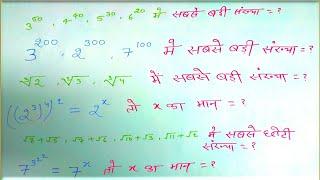 3⁵⁰, 4⁴⁰, 5³⁰, 6²⁰ में सबसे बड़ी संख्या = ?
3²⁰⁰, 2³⁰⁰, 7¹⁰⁰ में सबसे बड़ी संख्या = ?
∜2, ∛3, ∜4 में सबसे बड़ी संख्या = ?
((2³)⁴)² = 2ˣ तो x का मान = ?
√7+√6, √15+√5, √11+√6 में सबसे छोटी संख्या = ?
7^3^2^2 = 7ˣ तो x का मान = ?